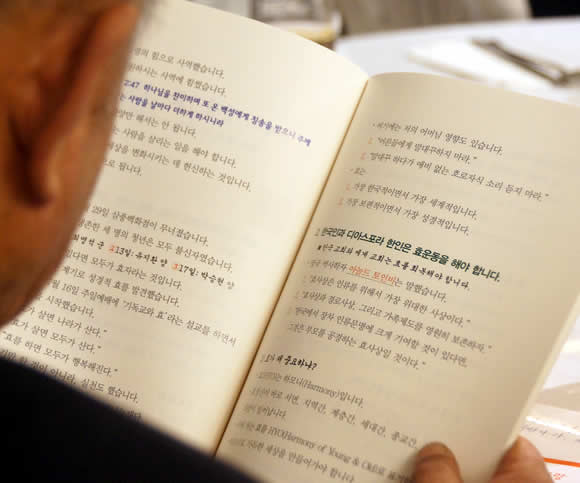 명의 힘으로 사역했습니다.
원하시는 사역에 힘썼습니다.
2:47 하나님을 찬미하며 또 온 백성에게 칭송을 받으니 주께
는 사람을 날마다 더하게 하시니라
만 해서는 안 됩니다.
는 사람을 살리는 일을 해야 합니다.
상을 변화시키는 데 헌신하는 것입니다.
으로 됩니다.
29일 삼풍백화점이 무너졌습니다.
존한 세 명의 청년은 모두 불신자였습니다.
최명석 군 213일: 유지환 양 317일: 박승현 양
있다면 모두가 효자라는 것입니다.
계기로 성경적 효를 발견했습니다.
월 16일 주일예배에 '기독교와 효'라는 설교를 하면서
시작했습니다.
가 살면 나라가 산다."
효가 살면 모두가 산다."
"효를 하면 모두가 행복해진다."
만 할 것이 아니라, 실천도 했습니다.
· 여기에는 저의 어머님 영향도 있습니다.
1. "어른들에게 말대꾸하지 마라."
2. "말대꾸 하다가 애비 없는 호로자식 소리 듣지 마라."
· 효는
1. 가장 한국적이면서 가장 세계적입니다.
2. 가장 보편적이면서 가장 성경적입니다.
2 한국인과 디아스포라 한인은 효운동을 해야 합니다.
■ 한국 교회와 세계 교회는 효를 회복해야 합니다.
· 영국 역사학자 아놀드 토인비는 말했습니다.
1. "효사상은 인류를 위해서 가장 위대한 사상이다."
2. "효사상과 경로사상, 그리고 가족제도를 영원히 보존하자."
3. "한국에서 장차 인류문명에 크게 기여할 것이 있다면,
그것은 부모를 공경하는 효사상일 것이다."
효가 왜 중요하나?
하모니(Harmony)입니다.
바로 서면, 지역간, 계층간, 세대간, 종교간,
효를 HYO(Harmony of Young & Old)로
가득한 세상을 만들어가야 합니다.